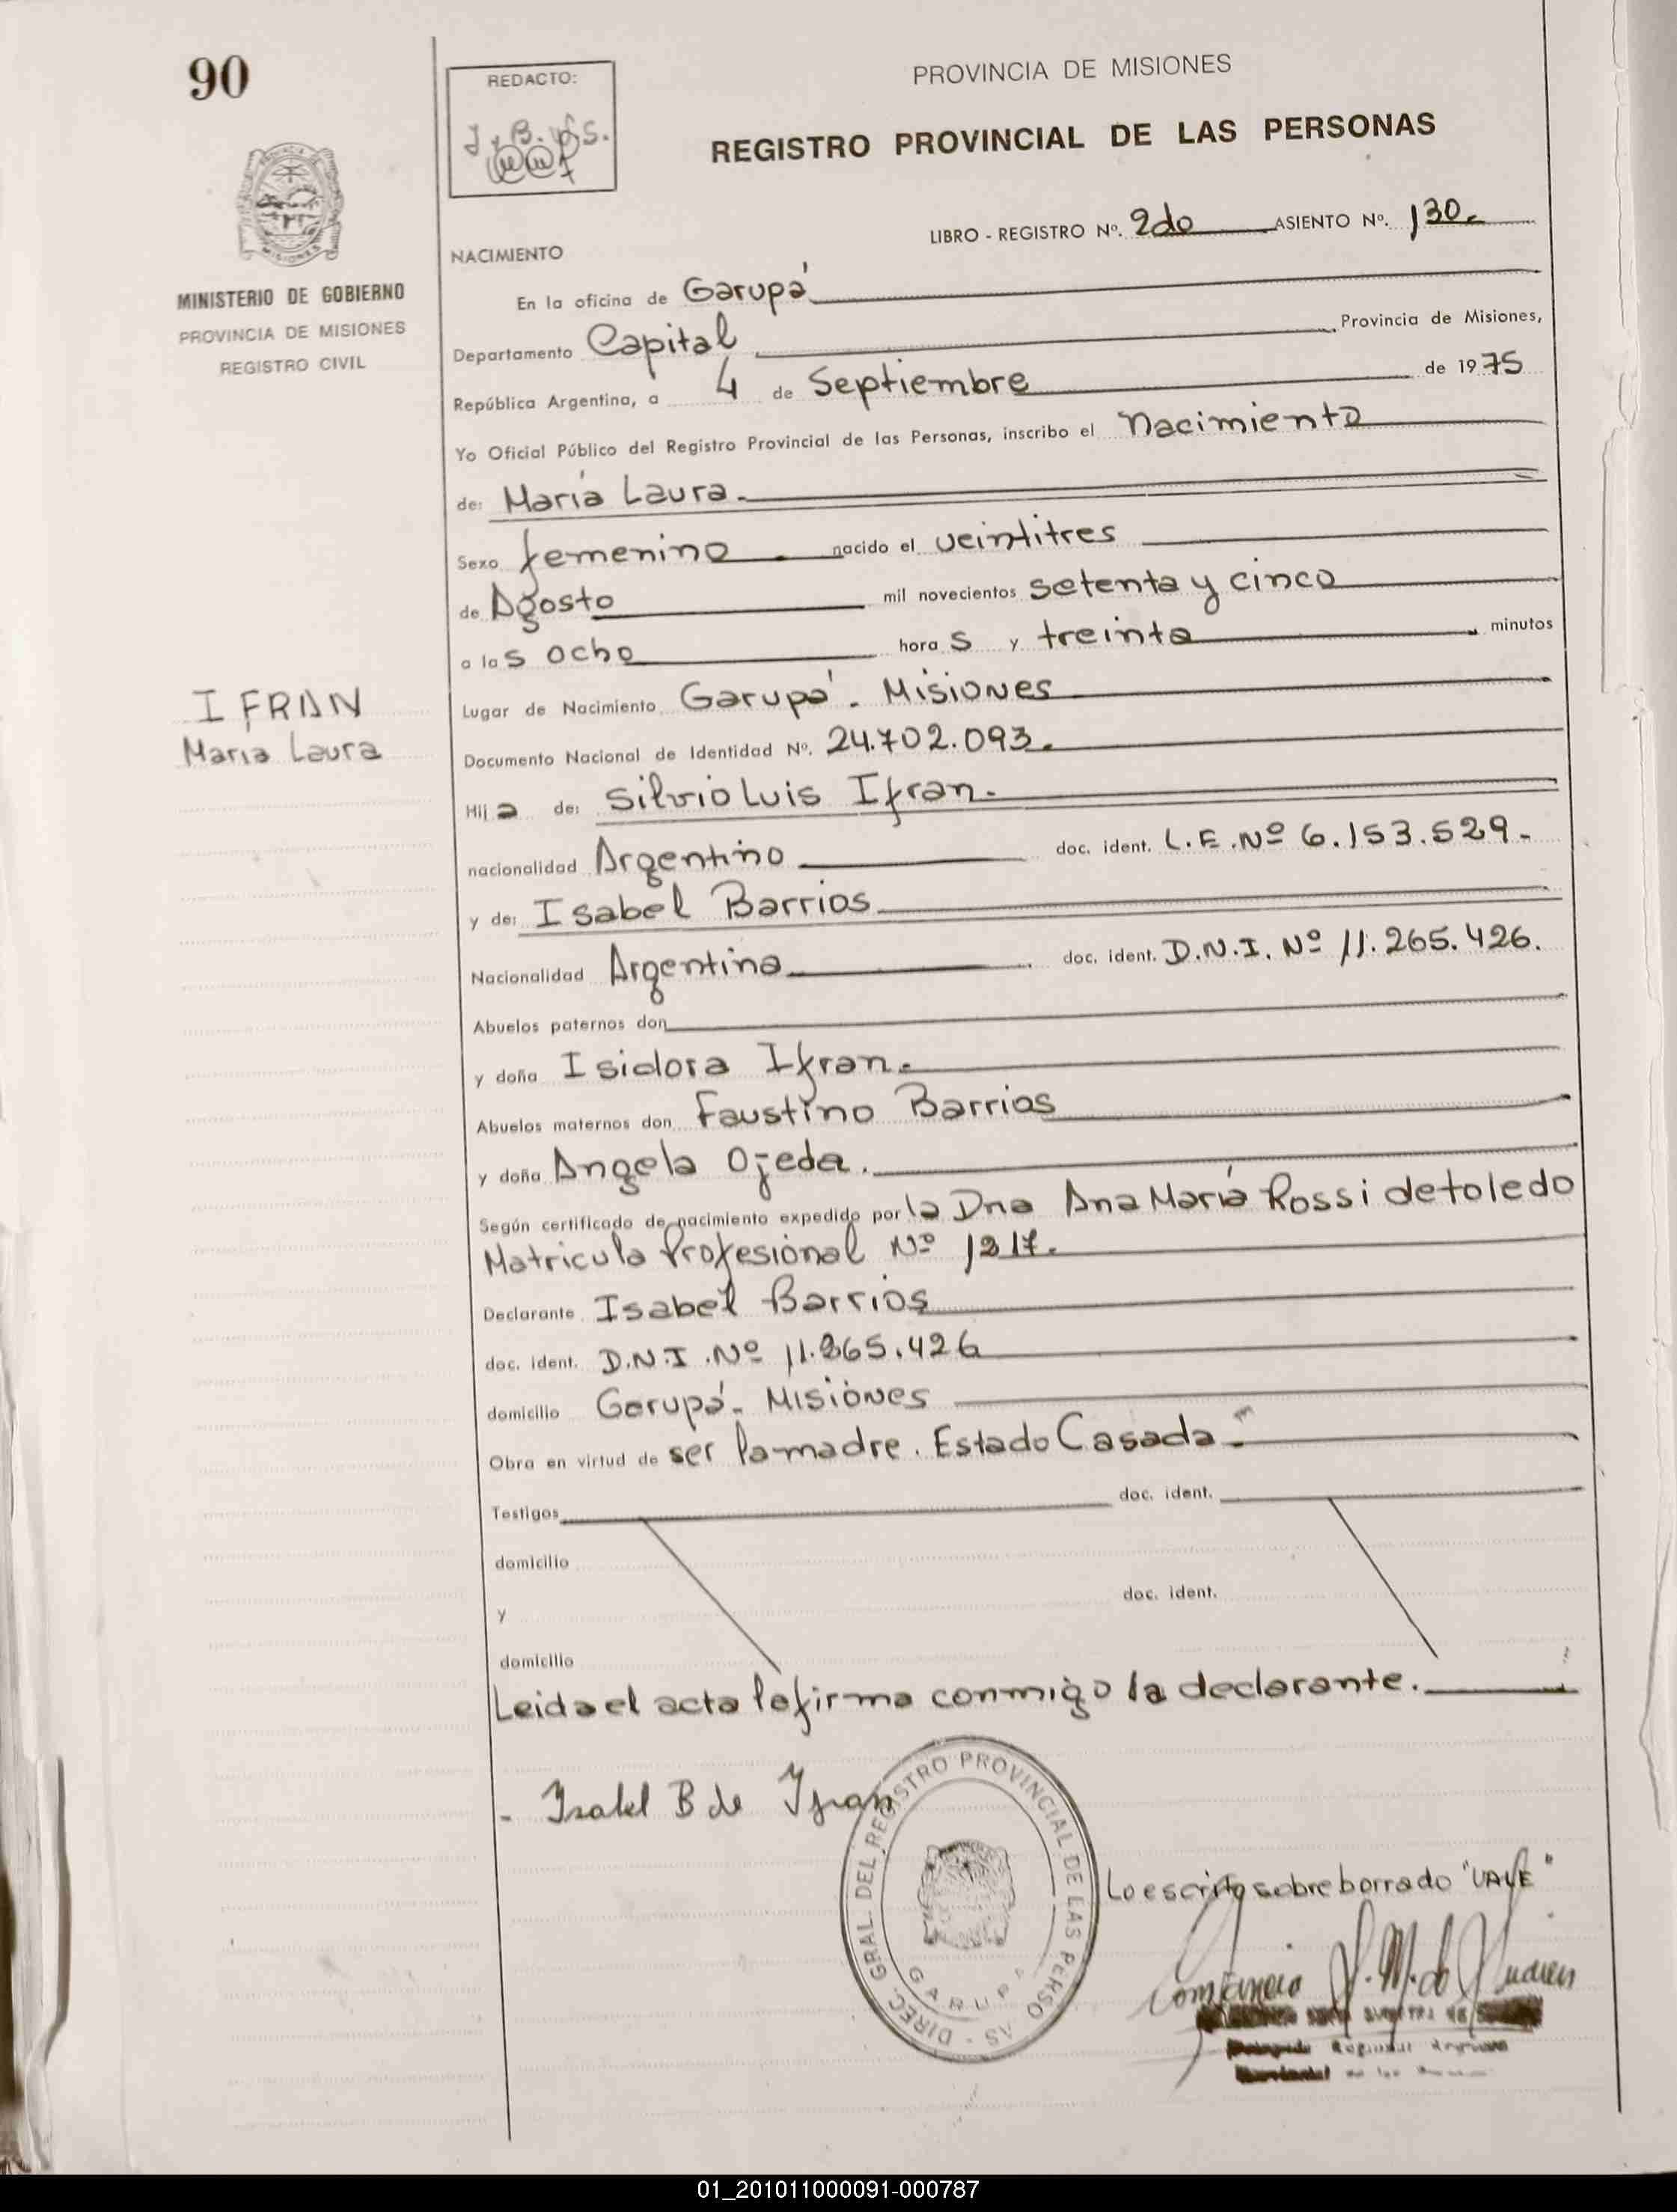 90
REDACTO:
PROVINCIA DE MISIONES
REGISTRO PROVINCIAL DE LAS PERSONAS
MINISTERIO DE GOBIERNO
PROVINCIA DE MISIONES
REGISTRO CIVIL
LIBRO - REGISTRO Nº. 2do ASIENTO Nº. 130.
NACIMIENTO
En la oficina de Garupá
Departamento Capital Provincia de Misiones,
República Argentina, a 4 de Septiembre de 1975
Yo Oficial Público del Registro Provincial de las Personas, inscribo el Nacimiento
de: María Laura.
Sexo femenino nacido el veintitres
de Agosto mil novecientos setenta y cinco
a las ocho horas y treinta minutos
IFRAN
María Laura
Lugar de Nacimiento Garupá. Misiones
Documento Nacional de Identidad Nº. 24.702.093.
Hija de: Silvio Luis Ifran.
nacionalidad Argentino doc. ident. L.E. Nº 6.153.529.
y de: Isabel Barrios
Nacionalidad Argentina doc. ident. D.N.I. Nº 11.265.426.
Abuelos paternos don
y doña Isidora Ifran.
Abuelos maternos don Faustino Barrios
y doña Angela Ojeda.
Según certificado de nacimiento expedido por la Dna Ana María Rossi de toledo
Matricula Profesional Nº 1217.
Declarante Isabel Barrios
doc. ident. D.N.I. Nº 11.265.426
domicilio Garupá. Misiones
Obra en virtud de ser la madre. Estado Casada.
Testigos doc. ident.
domicilio
y doc. ident.
domicilio
Leida el acta la firma conmigo la declarante.
Isabel B de Ifran
DIREC. GRAL. DEL REGISTRO PROVINCIAL DE LAS PERSONAS
GARUPA
Lo escrito sobre borrado "VALE"
01_201011000091-000787